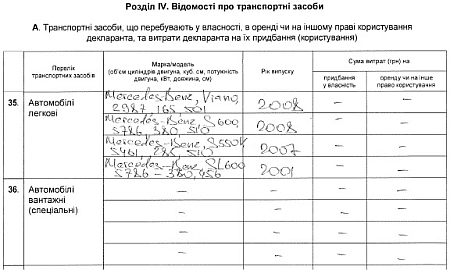 Розділ IV. Відомості про транспортні засоби
А. Транспортні засоби, що перебувають у власності, в оренді чи на іншому праві користування
декларанта, та витрати декларанта на їх придбання (користування)
Перелік
транспортних засобів
Марка/модель
(об'єм циліндрів двигуна, куб. см, потужність
двигуна, кВт, довжина, см)
Рік випуску
Сума витрат (грн) на
придбання
у власність
оренду чи на інше
право користування
35. Автомобілі
легкові
Mercedes-Benz, Viano,
2987 165 501
2008
– –
Mercedes-Benz S600,
5786 380, 510
2008
– –
Mercedes-Benz S550V
5461, 285 510
2007
– –
Mercedes-Benz SL600
5786 – 380, 456
2001
– –
36. Автомобілі
вантажні
(спеціальні)
– – – –
– – – –
– – – –
– – – –